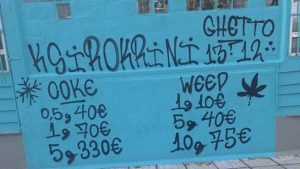 GHETTO
KSIROKRINI 13T12
COKE
0,5, 40€
1g 70€
5g 330€
WEED
1g 10€
5g 40€
10g 75€